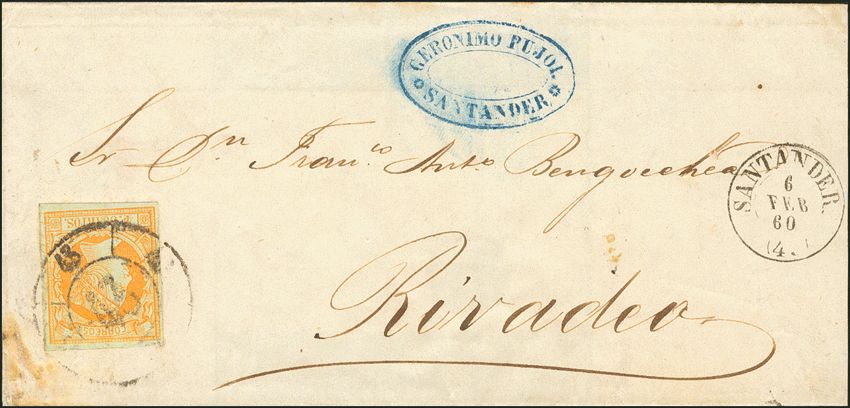 GERONIMO PUJOL
SANTANDER
Sr Dn Franco Anto Bengoechea
SANTANDER.
6
FEB
60
(4.)
Rivadeo
CORREOS